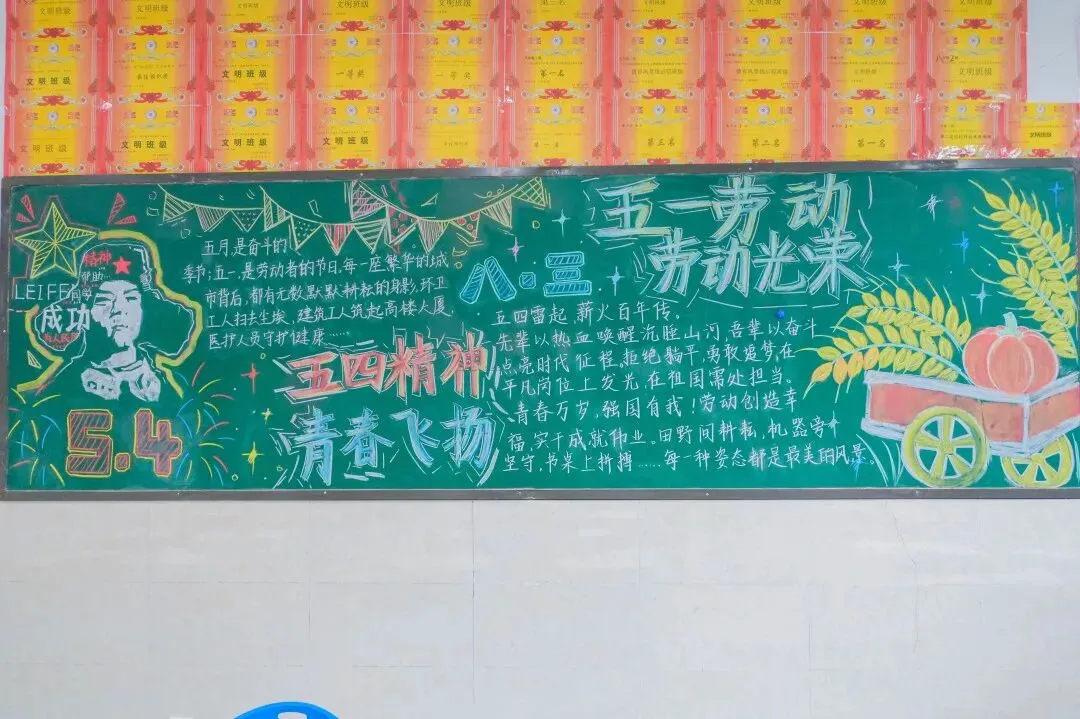 文明班级
文明班级
文明班级
第二名
文明班级
文明班级
文明班级
一等奖
一等奖
第一名
文明班级
文明班级
文明班级
文明班级
文明班级
文明班级
第一名
第三名
第二名
第一名
文明班级
五一劳动
劳动光荣
八·三
精神
帮助
LEIFE
同学
成功
为人民
5.4
五月,是奋斗的
季节;五一,是劳动者的节日,每一座繁华的城
市背后,都有无数默默耕耘的身影,环卫
工人扫去尘埃、建筑工人筑起高楼大厦,
医护人员守护健康……
五四精神
青春飞扬
五四雷起,薪火百年传。
先辈以热血唤醒沉睡山河,吾辈以奋斗
点亮时代征程,拒绝躺平,勇敢追梦,在
平凡岗位上发光,在祖国需处担当。
青春万岁,强国有我!劳动创造幸
福,实干成就伟业。田野间耕耘,机器旁
坚守,书桌上拼搏……每一种姿态都是最美的风景。